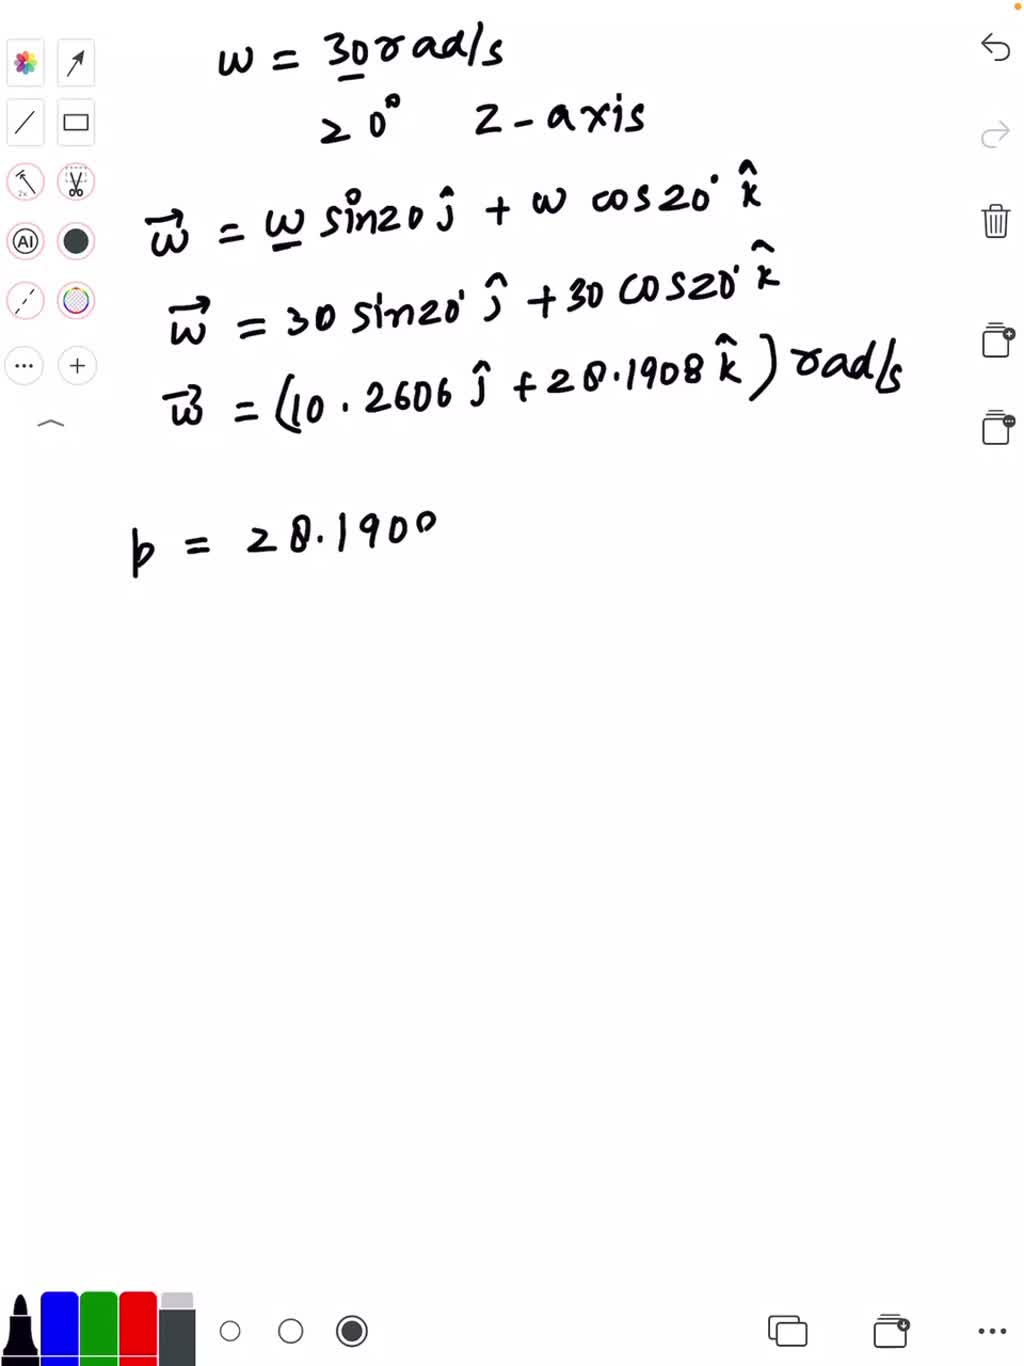 w = 30 rad/s
20° z-axis
w⃗ = w sin20 ĵ + w cos20° k̂
w⃗ = 30 sin20° ĵ + 30 cos20° k̂
w⃗ = (10.2606 ĵ + 28.1908 k̂) rad/s
2x
AI
p = 28.190